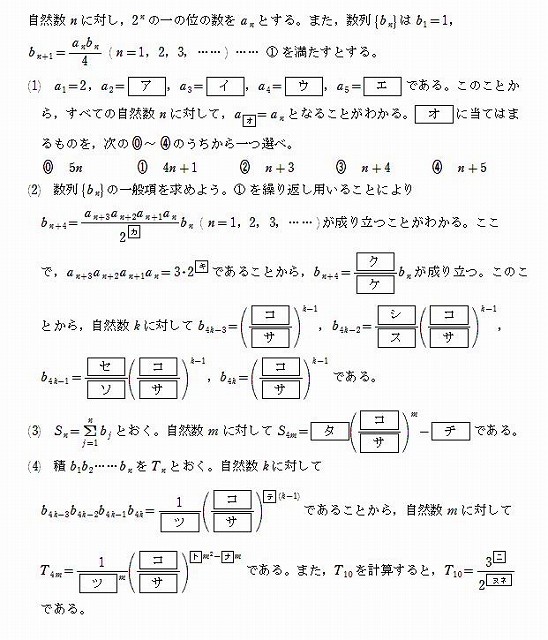 自然数 n に対し，2ⁿ の一の位の数を aₙ とする。また，数列 {bₙ} は b₁＝1，
bₙ₊₁＝aₙbₙ/4 ( n＝1，2，3，……) …… ① を満たすとする。
(1) a₁＝2，a₂＝[ア]，a₃＝[イ]，a₄＝[ウ]，a₅＝[エ] である。このことか
ら，すべての自然数 n に対して，a_[オ]＝aₙ となることがわかる。[オ] に当てはま
るものを，次の⓪～④のうちから一つ選べ。
⓪ 5n ① 4n＋1 ② n＋3 ③ n＋4 ④ n＋5
(2) 数列 {bₙ} の一般項を求めよう。①を繰り返し用いることにより
bₙ₊₄＝(aₙ₊₃aₙ₊₂aₙ₊₁aₙ/2^[カ])bₙ ( n＝1，2，3，……)が成り立つことがわかる。ここ
で，aₙ₊₃aₙ₊₂aₙ₊₁aₙ＝3・2^[キ] であることから，bₙ₊₄＝([ク]/[ケ])bₙ が成り立つ。このこ
とから，自然数 k に対して b₄ₖ₋₃＝([コ]/[サ])^(k−1)，b₄ₖ₋₂＝[シ]/[ス]([コ]/[サ])^(k−1)，
b₄ₖ₋₁＝[セ]/[ソ]([コ]/[サ])^(k−1)，b₄ₖ＝([コ]/[サ])^(k−1) である。
(3) Sₙ＝Σ_(j=1)^n bⱼ とおく。自然数 m に対して S₄ₘ＝[タ]([コ]/[サ])^m−[チ] である。
(4) 積 b₁b₂……bₙ を Tₙ とおく。自然数 k に対して
b₄ₖ₋₃b₄ₖ₋₂b₄ₖ₋₁b₄ₖ＝1/[ツ]([コ]/[サ])^([テ](k−1)) であることから，自然数 m に対して
T₄ₘ＝1/[ツ]^m([コ]/[サ])^([ト]m²−[ナ]m) である。また，T₁₀ を計算すると，T₁₀＝3^[ニ]/2^[ヌネ]
である。